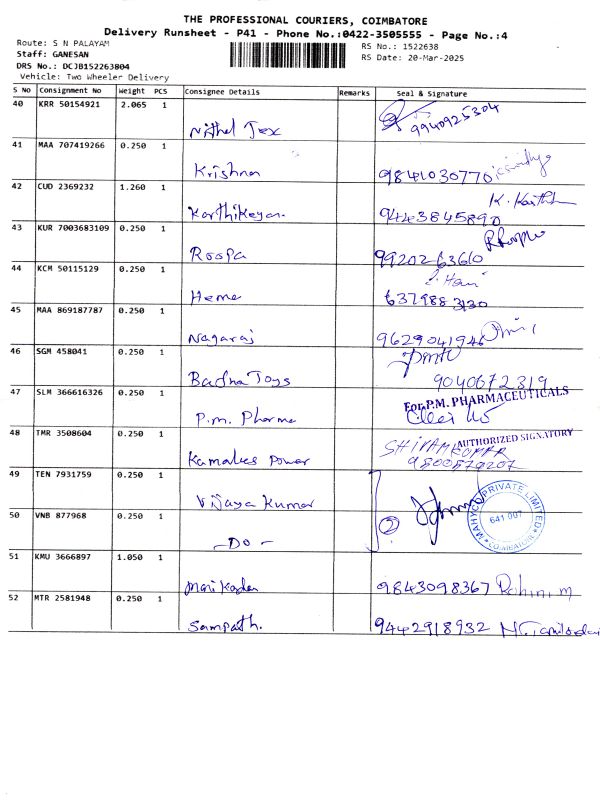 THE PROFESSIONAL COURIERS, COIMBATORE
Delivery Runsheet - P41 - Phone No.:0422-3505555 - Page No.:4
Route: S N PALAYAM
RS No.: 1522638
Staff: GANESAN
RS Date: 20-Mar-2025
DRS No.: DCJB152263804
Vehicle: Two Wheeler Delivery
S No Consignment No Weight PCS Consignee Details Remarks Seal & Signature
40 KRR 50154921 2.065 1
Nithel Tex 9940925304
41 MAA 707419266 0.250 1
Krishna 9841030770
42 CUD 2369232 1.260 1
Karthikeyan 9443845890 K. Karthi
43 KUR 7003683109 0.250 1
Roopa 9920263660
44 KCM 50115129 0.250 1
Heme 6379883130
45 MAA 869187787 0.250 1
Nagaraj 9629041946
46 SGM 458041 0.250 1
Badha Toys 9040672319
47 SLM 366616326 0.250 1
P.m. Pharma For P.M. PHARMACEUTICALS
AUTHORIZED SIGNATORY
48 TMR 3508604 0.250 1
Kamales Power SHIVAMKUMAR
9500579207
49 TEN 7931759 0.250 1
Vijaya Kumar
50 VNB 877968 0.250 1
- Do - 2
MAHYCO PRIVATE LIMITED
641 007
COIMBATORE
51 KMU 3666897 1.050 1
Mani Kandan 9843098367 Rohini.m
52 MTR 2581948 0.250 1
Sampath. 9442918932